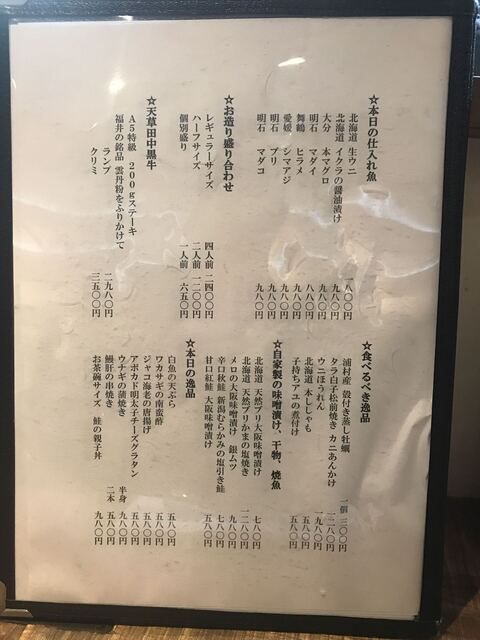 ☆本日の仕入れ魚
北海道 生ウニ 一八〇〇円
北海道 イクラの醤油漬け 九八〇円
大分 本マグロ 九八〇円
明石 マダイ 八八〇円
舞鶴 ヒラメ 九八〇円
愛媛 シマアジ 九八〇円
明石 ブリ 九八〇円
明石 マダコ 九八〇円
☆お造り盛り合わせ
レギュラーサイズ 四人前 二四〇〇円
ハーフサイズ 二人前 一二〇〇円
個別盛り 一人前 六五〇円
☆天草田中黒牛
A5特級 200gステーキ
福井の銘品 雲丹粉をふりかけて
ランプ 二九八〇円
クリミ 三五〇〇円
☆食べるべき逸品
浦村産 殻付き蒸し牡蠣 一個 三〇〇円
タラ白子松前焼き カニあんかけ 一二八〇円
ウニほうれん 一九八〇円
北海道 本ししゃも 五八〇円
子持ちアユの煮付け 五八〇円
☆自家製の味噌漬け、干物、焼魚
北海道 天然ブリ大阪味噌漬け 七八〇円
北海道 天然ブリかまの塩焼き 一二八〇円
メロの大阪味噌漬け 銀ムツ 九八〇円
辛口秋鮭 新潟むらかみの塩引き鮭 五八〇円
甘口紅鮭 大阪味噌漬け 五八〇円
☆本日の逸品
白魚の天ぷら 五八〇円
ワカサギの南蛮酢 五八〇円
ジャコ海老の唐揚げ 五八〇円
アボカド明太子チーズグラタン 五八〇円
ウナギの蒲焼き 半身 九八〇円
鰻肝の串焼き 二本 五八〇円
お茶碗サイズ 鮭の親子丼 九八〇円